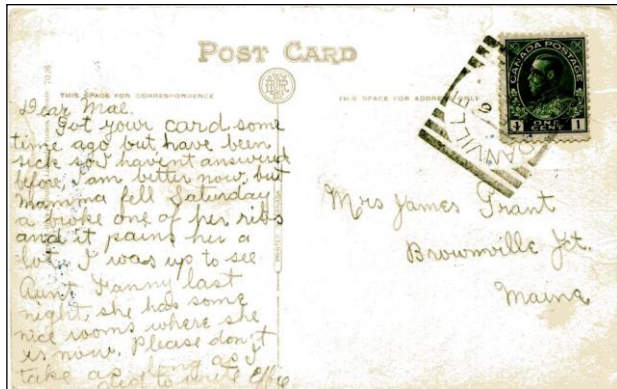 POST CARD
THIS SPACE FOR CORRESPONDENCE
THIS SPACE FOR ADDRESS ONLY
CANADA POSTAGE
1 1
ONE
CENT
Dear Mae.
Got your card some
time ago but have been
sick so havent answerd
before, I am better now, but
mamma fell Saturday
a broke one of her ribs
and it pains her a
lot. I was up to see
Aunt Fanny last
night, she has some
nice rooms where she
is now. Please don't
take as long as I
did to write Effie
Mrs James Grant
Brownville Jct.
Maine